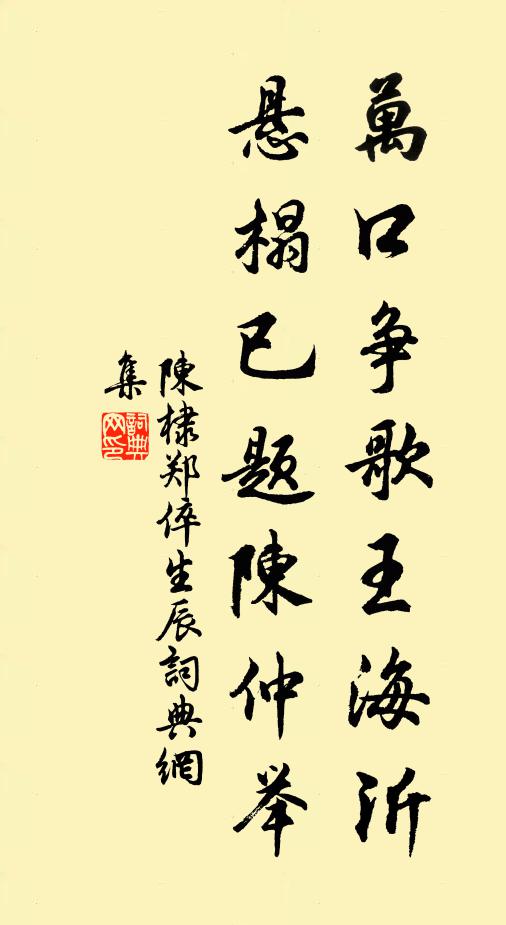 萬口争歌王海沂
悬榻已题陳仲举
陳棣郑倅生辰詞典網
集
詞典网印